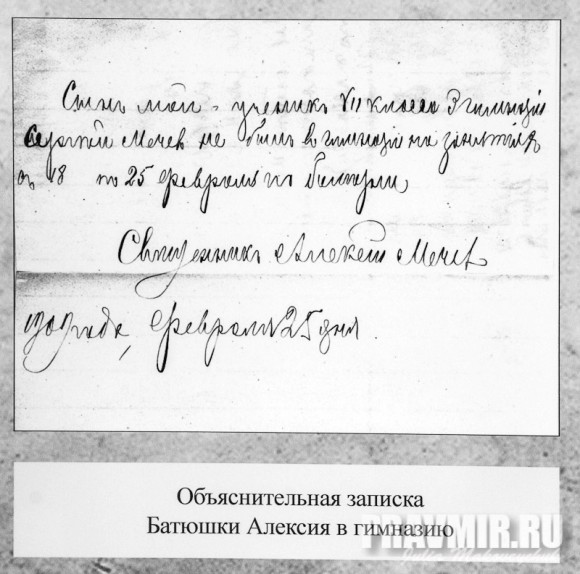 Сынъ мой - ученикъ VII класса 3 гимназiи
Сергѣй Мечев не былъ в гимназiи на занятiяхъ
съ 18 по 25 февраля по болѣзни
Священникъ Алексѣй Мечев
1909 года, Февраля 25 дня.
Объяснительная записка
Батюшки Алексия в гимназию
PRAVMIR.RU